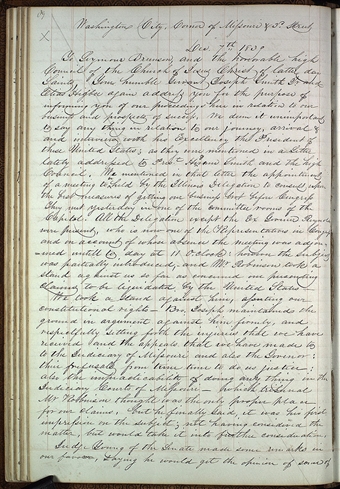 Washington City, Corner of Missouri & 3d Street
Dec. 7th 1839
To Seymour Brunson, and the honorable high
Council of the Church of Jesus Christ of latter day
Saints, Your humble servants Joseph Smith Jr and
Elias Higbee again address you for the purpose of
informing you of our proceedings here in relation to our
business and prospects of success. We deem it unimportant
to say any thing in relation to our journey, arrival &
and interview with his Excellency the President of
these United States; as they were mentioned in a letter
lately addressed to Prest. Hyrum Smith and the high
Council. We mentioned in that letter the appointment
of a meeting to be held by the Illinois Delegation to consult upon
the best measure of getting our business before Congress
They met yesterday in one of the Committee rooms of the
Capitol: All the Delegation except the Ex Govenor Reynolds
were present, who is now one of the Representatives in Congress
and on account of whose absence the meeting was adjour-
-ned untill to day at 11 O.clock: however the subject
was partially introduced, and Mr. Robinson took a
stand against us so far as concerned our presenting
claims to be liquidated by the United States
We took a stand against him, asserting our
constitutional rights— Bro. Joseph maintained the
ground in argument against him firmly, and
respectfully setting forth the injuries that we have
received and the appeals that we have made to
to the Judiciary of Missouri and also the Govenor:
their refusals from time to time to do us justice:
also the impracticability of doing any thing in the
Judiciary Courts of Missouri— which tribunals
Mr Robinson thought was the only proper place
for our claims. but he finally said, it was his first
impression on the subject; not having considered the
matter, but would take it into further consideration.
Judge Young of the Senate made some remarks in
our favour, saying he would get the opinion of some of